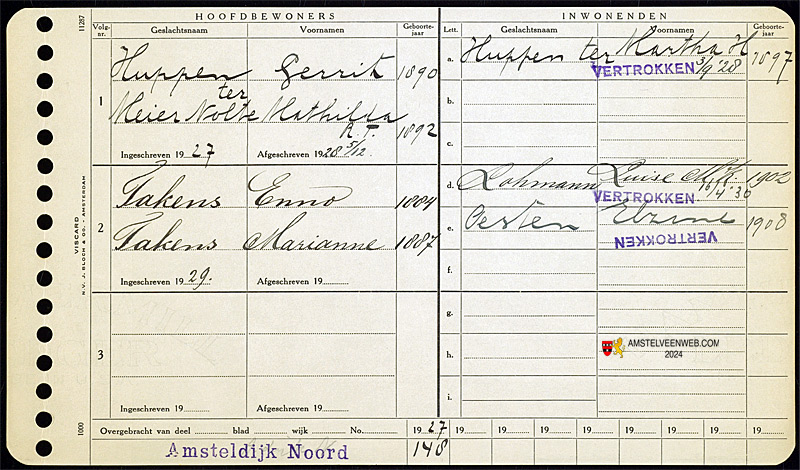 HOOFDBEWONERS
Volg-nr. Geslachtsnaam Voornamen Geboorte-jaar
1
Huppen ter Gerrit 1890
Meier Nolte Mathilda 1892
Ingeschreven 19 27 Afgeschreven 19 28 5/12
2
Takens Enno 1884
Takens Marianne 1887
Ingeschreven 19 29. Afgeschreven 19
3
Ingeschreven 19 Afgeschreven 19
INWONENDEN
Lett. Geslachtsnaam Voornamen Geboorte-jaar
a. Huppen ter Martha H 1897
VERTROKKEN 3/9 '28
b.
c.
d. Lohmann Luise 1902
VERTROKKEN 16/4 '30
e. Oesten 1908
VERTROKKEN
f.
g.
h.
i.
AMSTELVEENWEB.COM
2024
Overgebracht van deel blad wijk No. 19 27 19 19 19 19 19 19 19 19
Amsteldijk Noord 148
11287
VISCARD
N.V. J. BLOCH & CO. - AMSTERDAM
1000